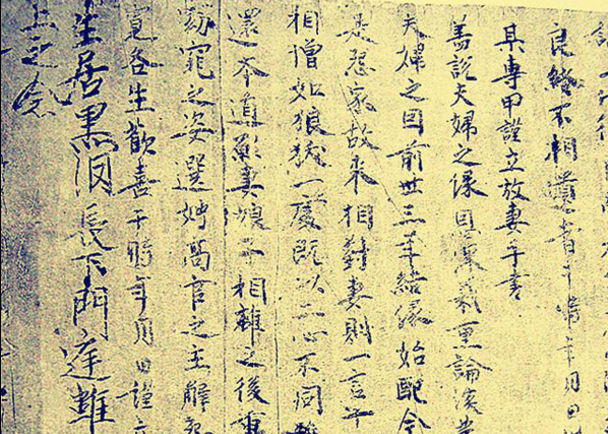 終不相遺者于時年月日
某專甲謹立放妻手書
蓋說夫婦之緣恩深義重論談
夫婦之因前世三年結緣始配今
是怨家故來相對妻則一言十
相憎如狼犺一處既以二心不同難
還本道願妻娘子相離之後重
窕之姿選娉高官之主解怨
寬各生歡喜于時年月日謹立
生居黑長下門庭雖
上之念